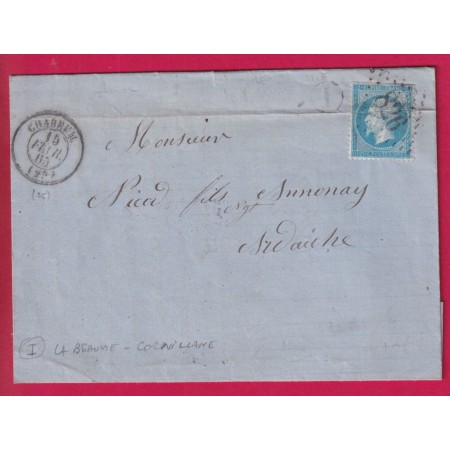 CHABEUIL
15
FEVR.
65
(25)
(25)
I
Monsieur
Picod fils Annonay
Ardèche
I LA BEAUME - CORNILLANE